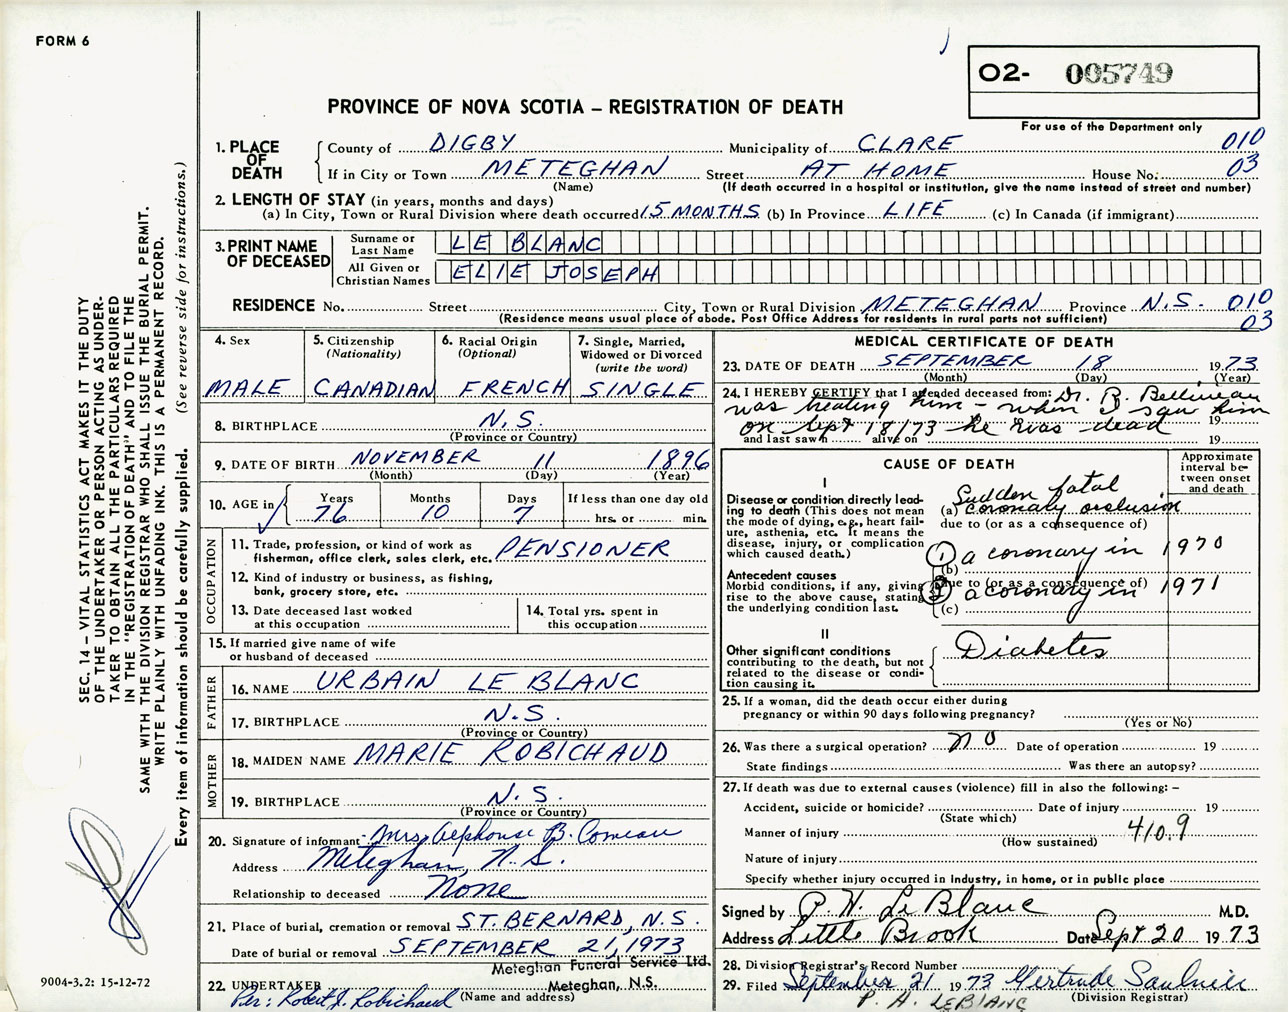 FORM 6
O2- 005749
PROVINCE OF NOVA SCOTIA – REGISTRATION OF DEATH
For use of the Department only
1. PLACE OF DEATH
County of DIGBY Municipality of CLARE 010
If in City or Town METEGHAN Street AT HOME House No. 03
(Name) (If death occurred in a hospital or institution, give the name instead of street and number)
2. LENGTH OF STAY (in years, months and days)
(a) In City, Town or Rural Division where death occurred 15 MONTHS (b) In Province LIFE (c) In Canada (if immigrant)
3. PRINT NAME OF DECEASED
Surname or Last Name LE BLANC
All Given or Christian Names ELIE JOSEPH
RESIDENCE No. Street City, Town or Rural Division METEGHAN Province N.S. 010
(Residence means usual place of abode. Post Office Address for residents in rural parts not sufficient) 03
4. Sex
MALE
5. Citizenship
(Nationality)
CANADIAN
6. Racial Origin
(Optional)
FRENCH
7. Single, Married,
Widowed or Divorced
(write the word)
SINGLE
8. BIRTHPLACE N.S.
(Province or Country)
9. DATE OF BIRTH NOVEMBER 11 1896
(Month) (Day) (Year)
10. AGE in Years Months Days If less than one day old
76 10 7 hrs. or min.
OCCUPATION
11. Trade, profession, or kind of work as
fisherman, office clerk, sales clerk, etc. PENSIONER
12. Kind of industry or business, as fishing,
bank, grocery store, etc.
13. Date deceased last worked
at this occupation
14. Total yrs. spent in
this occupation
15. If married give name of wife
or husband of deceased
FATHER
16. NAME URBAIN LE BLANC
17. BIRTHPLACE N.S.
(Province or Country)
MOTHER
18. MAIDEN NAME MARIE ROBICHAUD
19. BIRTHPLACE N.S.
(Province or Country)
20. Signature of informant Mrs. Alphonse B. Comeau
Address Meteghan, N.S.
Relationship to deceased None
21. Place of burial, cremation or removal ST. BERNARD, N.S.
Date of burial or removal SEPTEMBER 21, 1973
Meteghan Funeral Service Ltd.
22. UNDERTAKER Meteghan, N.S.
Per: Robert J. Robichaud (Name and address)
MEDICAL CERTIFICATE OF DEATH
23. DATE OF DEATH SEPTEMBER 18 1973
(Month) (Day) (Year)
24. I HEREBY CERTIFY that I attended deceased from: Dr. R. Belliveau
was treating him – when I saw him 19
on Sept 18/73 he was dead
and last saw h alive on 19
CAUSE OF DEATH
Approximate
interval be-
tween onset
and death
I
Disease or condition directly lead-
ing to death (This does not mean
the mode of dying, e.g., heart fail-
ure, asthenia, etc. It means the
disease, injury, or complication
which caused death.)
Sudden fatal
(a) coronary occlusion
due to (or as a consequence of)
(1) a coronary in 1970
(b)
Antecedent causes
Morbid conditions, if any, giving
rise to the above cause, stating
the underlying condition last.
due to (or as a consequence of)
(2) a coronary in 1971
(c)
II
Other significant conditions
contributing to the death, but not
related to the disease or condi-
tion causing it.
Diabetes
25. If a woman, did the death occur either during
pregnancy or within 90 days following pregnancy?
(Yes or No)
26. Was there a surgical operation? no Date of operation 19
State findings Was there an autopsy?
27. If death was due to external causes (violence) fill in also the following: –
Accident, suicide or homicide? Date of injury 19
(State which)
Manner of injury 410.9
(How sustained)
Nature of injury
Specify whether injury occurred in industry, in home, or in public place
Signed by P. H. LeBlanc M.D.
Address Little Brook Date Sept 20 1973
28. Division Registrar's Record Number
29. Filed September 21 1973 Gertrude Saulnier
P. H. LEBLANC (Division Registrar)
SEC. 14 – VITAL STATISTICS ACT MAKES IT THE DUTY
OF THE UNDERTAKER OR PERSON ACTING AS UNDER-
TAKER TO OBTAIN ALL THE PARTICULARS REQUIRED
IN THE "REGISTRATION OF DEATH" AND TO FILE THE
SAME WITH THE DIVISION REGISTRAR WHO SHALL ISSUE THE BURIAL PERMIT.
WRITE PLAINLY WITH UNFADING INK. THIS IS A PERMANENT RECORD.
Every item of information should be carefully supplied. (See reverse side for instructions.)
9004-3.2: 15-12-72